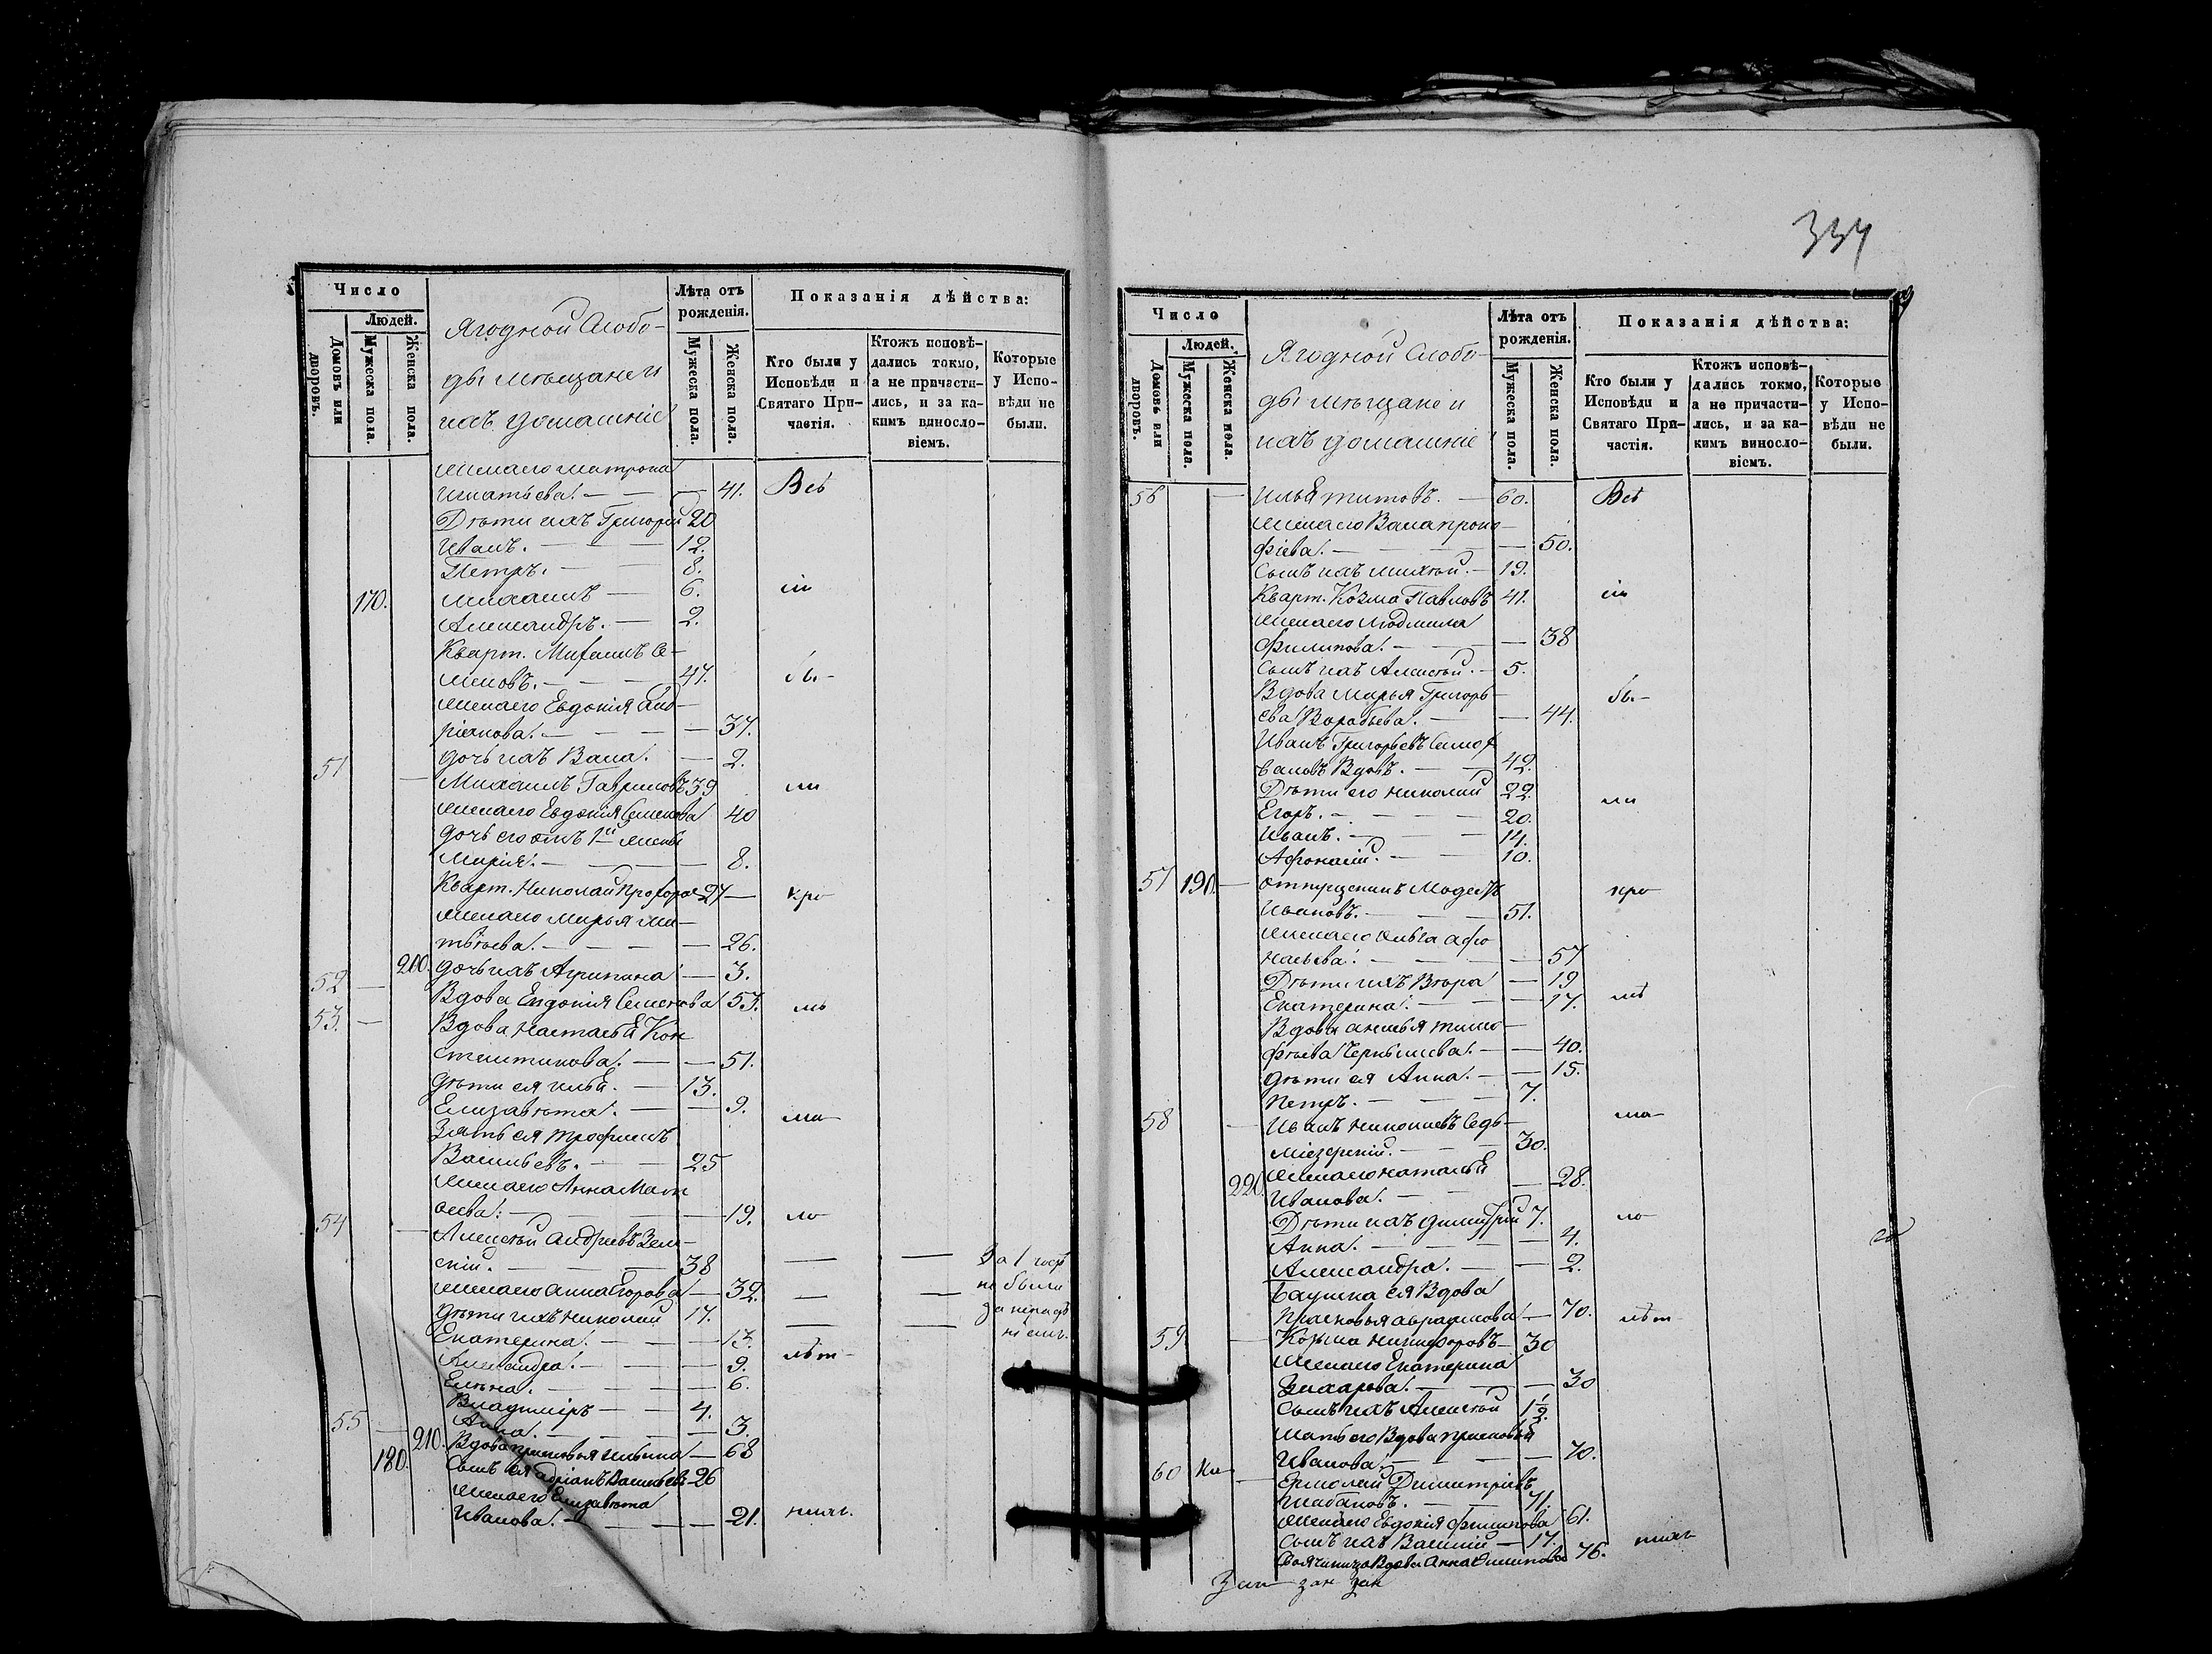 Число
Людей.
Домовъ или дворовъ.
Мужеска пола.
Женска пола.
Ягодной Слобо-
ды мѣщане и
ихъ домашніе
Лѣта отъ рожденія.
Мужеска пола.
Женска пола.
Показанія дѣйства:
Кто были у Исповѣди и Святаго Причастія.
Ктожъ исповѣдались токмо, а не причастились, и за какимъ винословіемъ.
Которые у Исповѣди не были.
жена его матрона
игнатьева. — — — 41. Всѣ
Дѣти ихъ Григорій 20
Иванъ. — — 12.
Петръ. — — 8.
170. михаилъ — 6.
Александръ. — 2.
Кварт. Михаилъ Се-
меновъ. — — — 47. бы-
жена его Евдокія Анд-
ріянова. — — — 37.
дочь ихъ Анна. — 2.
51 — Михаилъ Гавриловъ 39 ли
жена его Евдокія Семенова 40
дочь его отъ 1й жены
Марія. — — — 8.
Кварт. Николай Прохоров 27 — кро
жена его Марья Ма-
твѣева. — — — 26.
200. дочь ихъ Агрипина — 3.
52 — Вдова Евдокія Семенова 53. мѣ
53. — Вдова Настасья Кон
стантинова. — — 51.
дѣти ея илья. — 13.
Елизавѣта. — — 9.
Зять ея трофимъ ма-
Васильевъ. — — 25
жена его Анна Матв
ѣева. — — 19. ло-
54 — Алексѣй Андреевъ
скій. — — 38 — —
жена его Анна Егорова — 32. — — не были
дѣти ихъ николай 17. — —
Екатерина. — — 13.
Александра. — — 9. лѣт-
Елена. — — 6.
Владиміръ — — 4.
Анна. — — 3.
55 — 210. Вдова прасковья ильина — 68
180. Сынъ ея адріанъ Васильевъ 26
жена его Елизавѣта
Иванова. — — 21. нихъ.
334
Число
Людей.
Домовъ или дворовъ.
Мужеска пола.
Женска пола.
Ягодной Слобо-
ды мѣщане и
ихъ домашніе
Лѣта отъ рожденія.
Мужеска пола.
Женска пола.
Показанія дѣйства:
Кто были у Исповѣди и Святаго Причастія.
Ктожъ исповѣдались токмо, а не причастились, и за какимъ винословіемъ.
Которые у Исповѣди не были.
56 — илья титовъ. — 60. Всѣ
жена его Анна проко-
фіева. — — — 50.
Сынъ ихъ михей. — 19.
Кварт. Козма Павловъ 41.
жена его людмила
филипова. — — — 38
Сынъ ихъ Алексѣй. — 5.
Вдова марья Григорь- бы-
ева Воробьева. — — 44.
Иванъ Григорьевъ
Вдовъ. — — 42.
Дѣти его николай 22. ли
Егоръ. — — — 20.
Иванъ. — — — 14.
Афонасій. — — 10.
57 190. — отпущеникъ Модестъ кро
Ивановъ. — — — 51.
жена его ольга афо
насьева. — — — 57
Дѣти ихъ Вѣра — 19
Екатерина. — — 17. мѣ
Вдова анисья тимо-
фѣева Чернышева. — — 40.
дѣти ея Анна. — — 15.
петръ. — — — 7.
58 — Иванъ николаевъ Седь- ма-
міезерскій. — — 30.
220. жена его наталья
Иванова. — — — 28.
Дѣти ихъ димитрій 7. ло-
Анна. — — — 4.
Александра. — — 2.
Вдова
прасковья авраамова — 70. лѣт-
59 — Козьма никифоровъ — 30
жена его Екатерина
Захарова. — — — 30
Сынъ ихъ Алексѣй 1½.
мать его Вдова прасковья
Иванова. — — — 70.
60 — Ермолай Димитріевъ
Шабановъ. — — 71.
жена его Евдокія филипова 61.
Сынъ ихъ Василій — 17. нихъ
Вдова Анна 76.